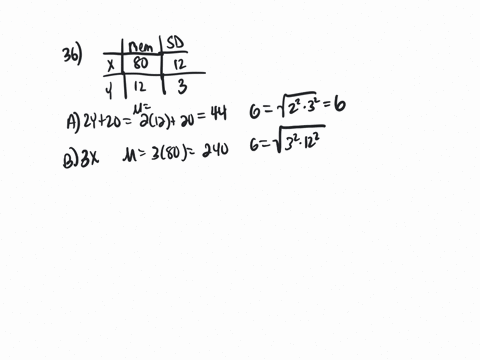 36)
Mean SD
X 80 12
Y 12 3
A) 2Y+20 = μ= 2(12)+20 = 44 σ = √2²·3² = 6
B) 3X μ = 3(80) = 240 σ = √3²·12²